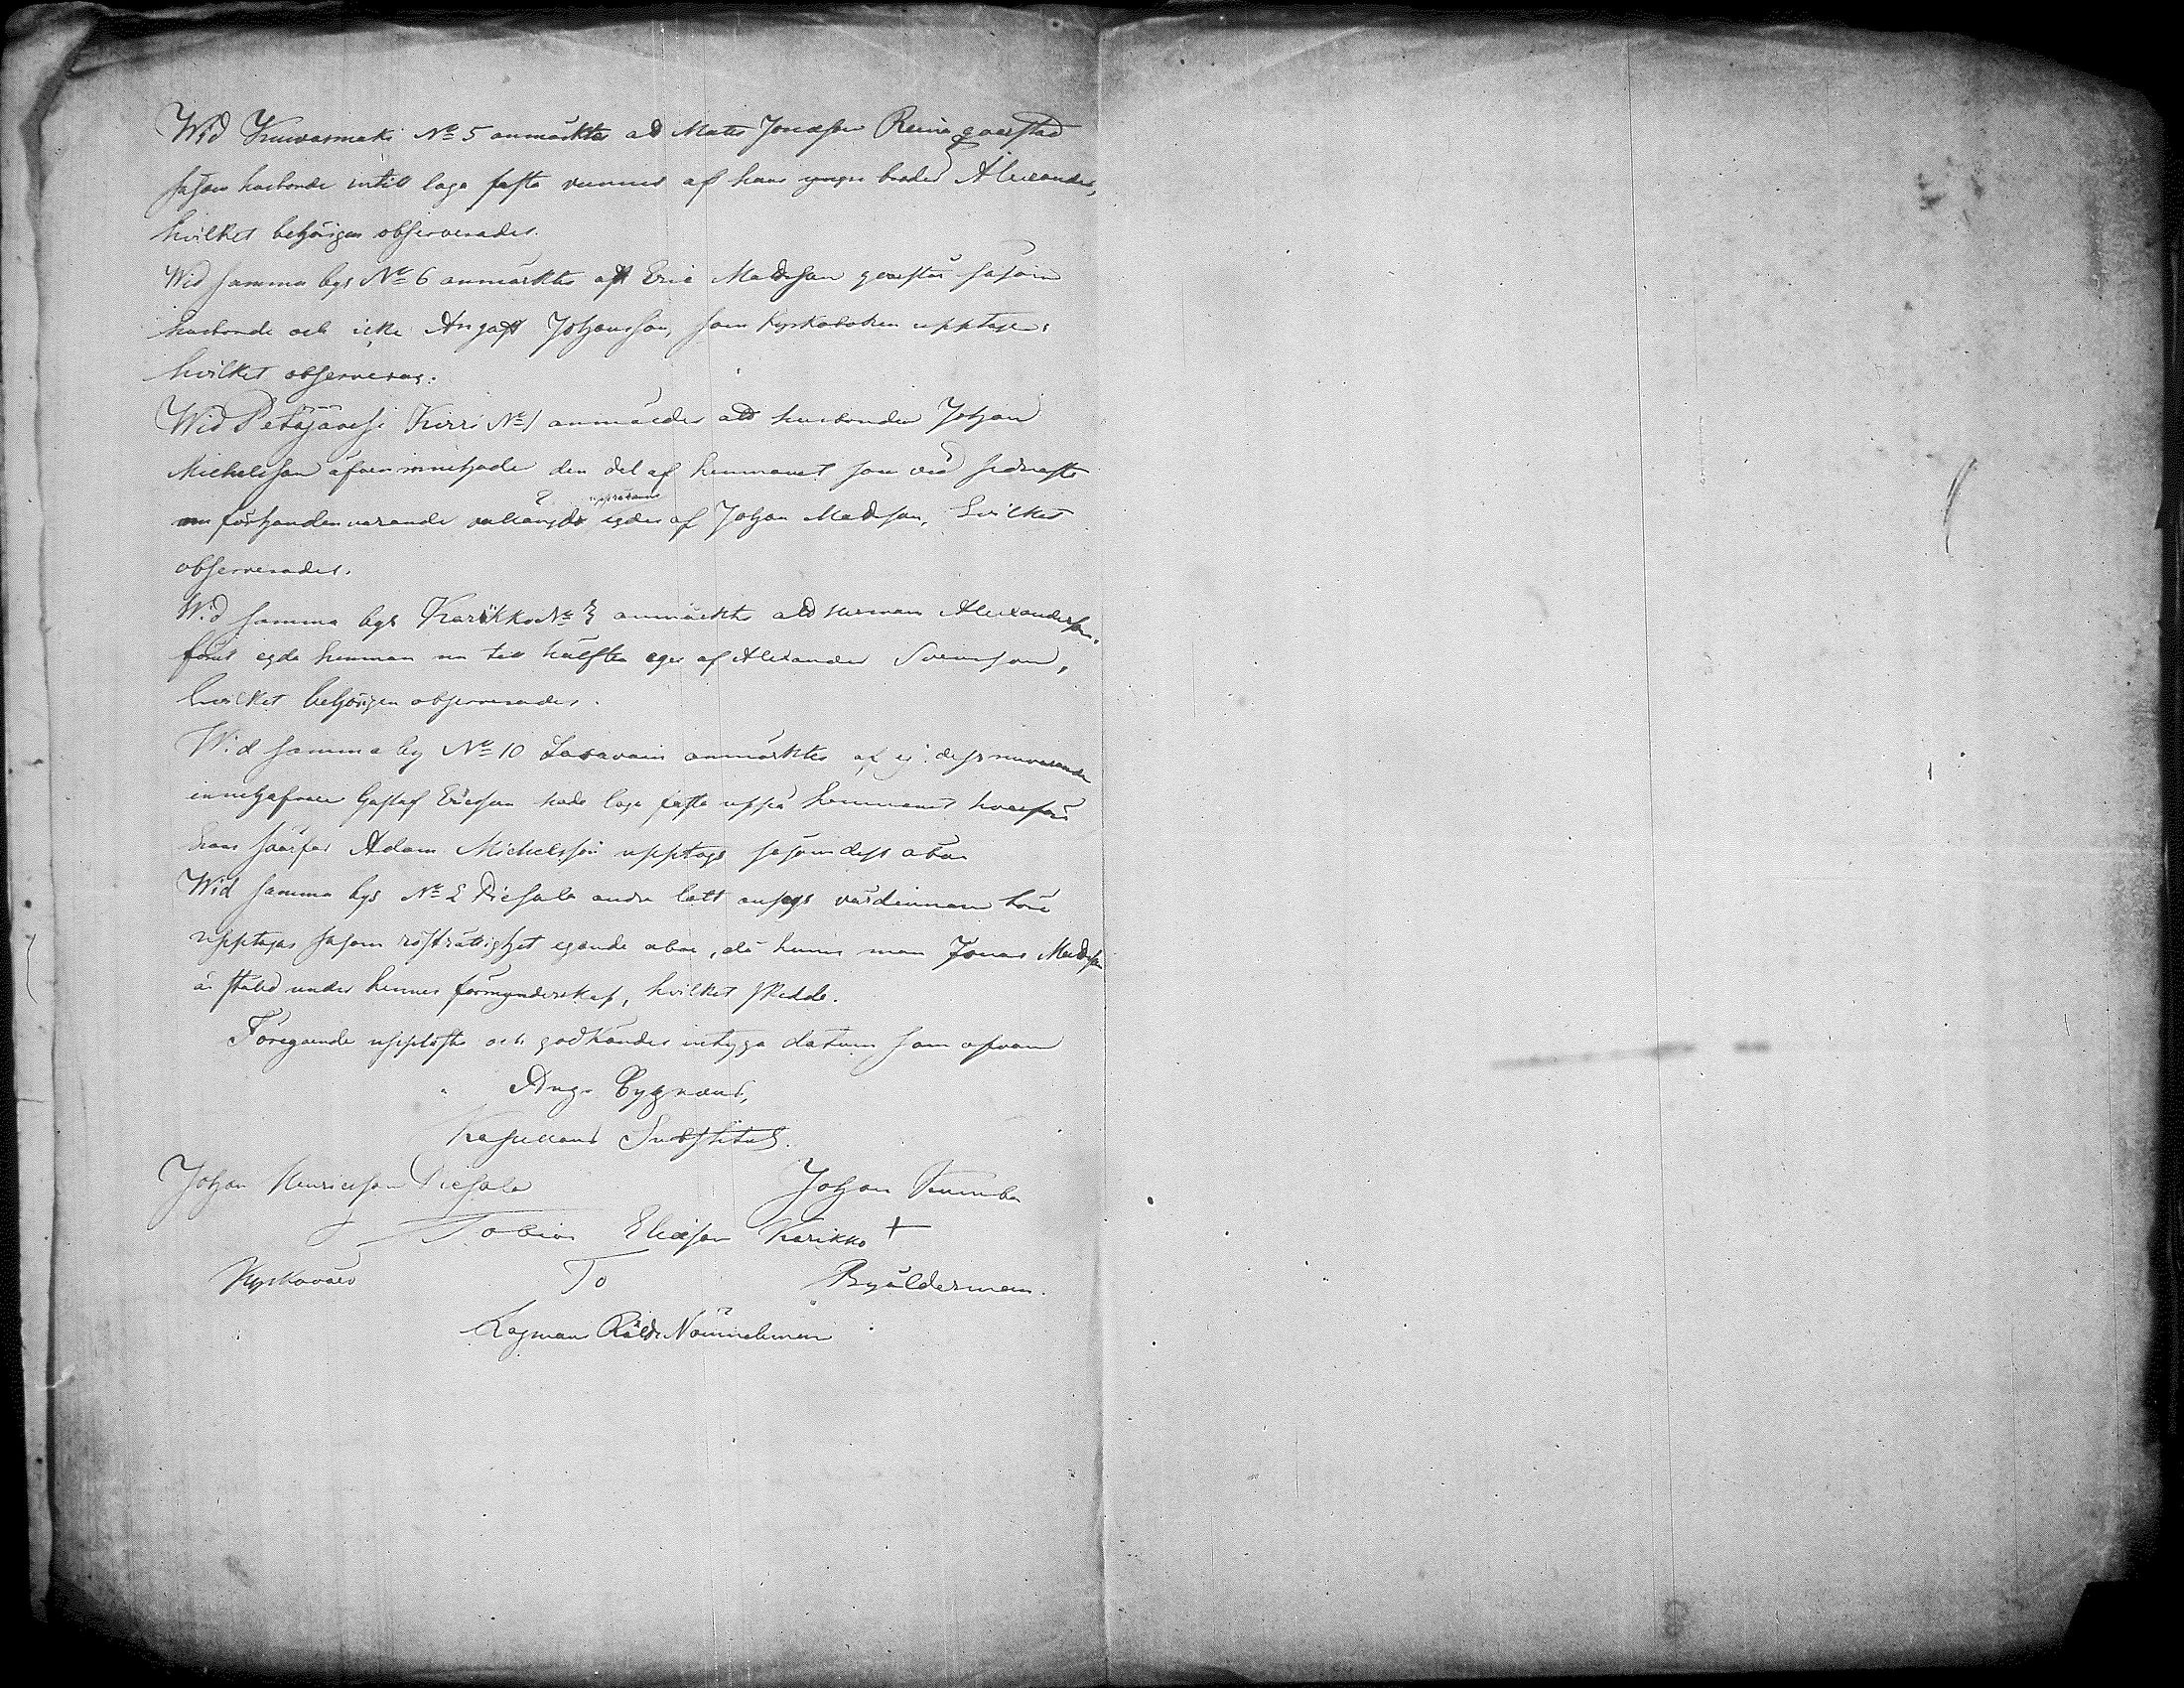 Wid Kuivasmäki No 5 anmärktes att Matts Josefsson Reini qvarstad
såsom husbonde intill laga fasta vunnits af hans yngre broder Alexander,
hvilket behörigen observerades.
Wid samma bys No 6 anmärktes att Eric Mattsson qvarstår såsom
husbonde och icke August Johansson, som kyrkoboken upptager;
hvilket observeras.
Wid Petäjävesi Kirri No 1 anmäldes att husbonden Johan
Michelsson äfven innehade den del af hemmanet som vid sednaste
nu förhandenvarande egdes af Johan Mattsson, hvilket
observerades.
Wid samma bys Karikko No 3 anmärktes att Herman Alexandersson
förut egda hemman nu till hälften eges af Alexander Svensson,
hvilket behörigen observerades.
Wid samma by No 10 anmärktes att ej dess nuvarande
innehafvare Gustaf Ericsson hade laga fasta uppå hemmanet hvarföre
hans svärfar Adam Michelsson upptogs såsom dess åbo
Wid samma bys No 2 Piesala andra lott ansågs värdinnan böra
upptagas såsom rösträttighet egande åbo, då hennes man Jonas Mattsson
är ställd under hennes förmynderskap, hvilket skedde.
Föregående upplästes och godkändes intyga datum som ofvan
Aug. Cygnæus,
Kapellans Substitut.
Johan Henricsson Piesala Johan
Tobias Eliasson Karikko +
Kyrkovärd To Byålderman.
Lagman